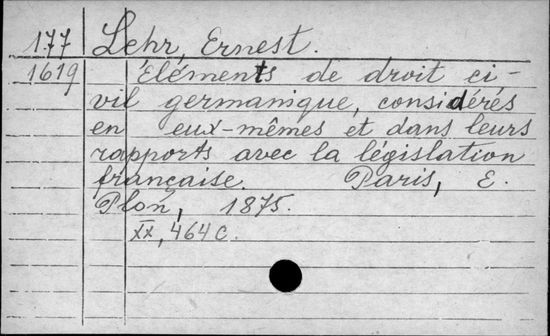 177 Lehr, Ernest.
1619 Éléments de droit ci-
vil germanique, considérés
en eux-mêmes et dans leurs
rapports avec la législation
française. Paris, E.
Plon, 1875.
XX, 464 c.